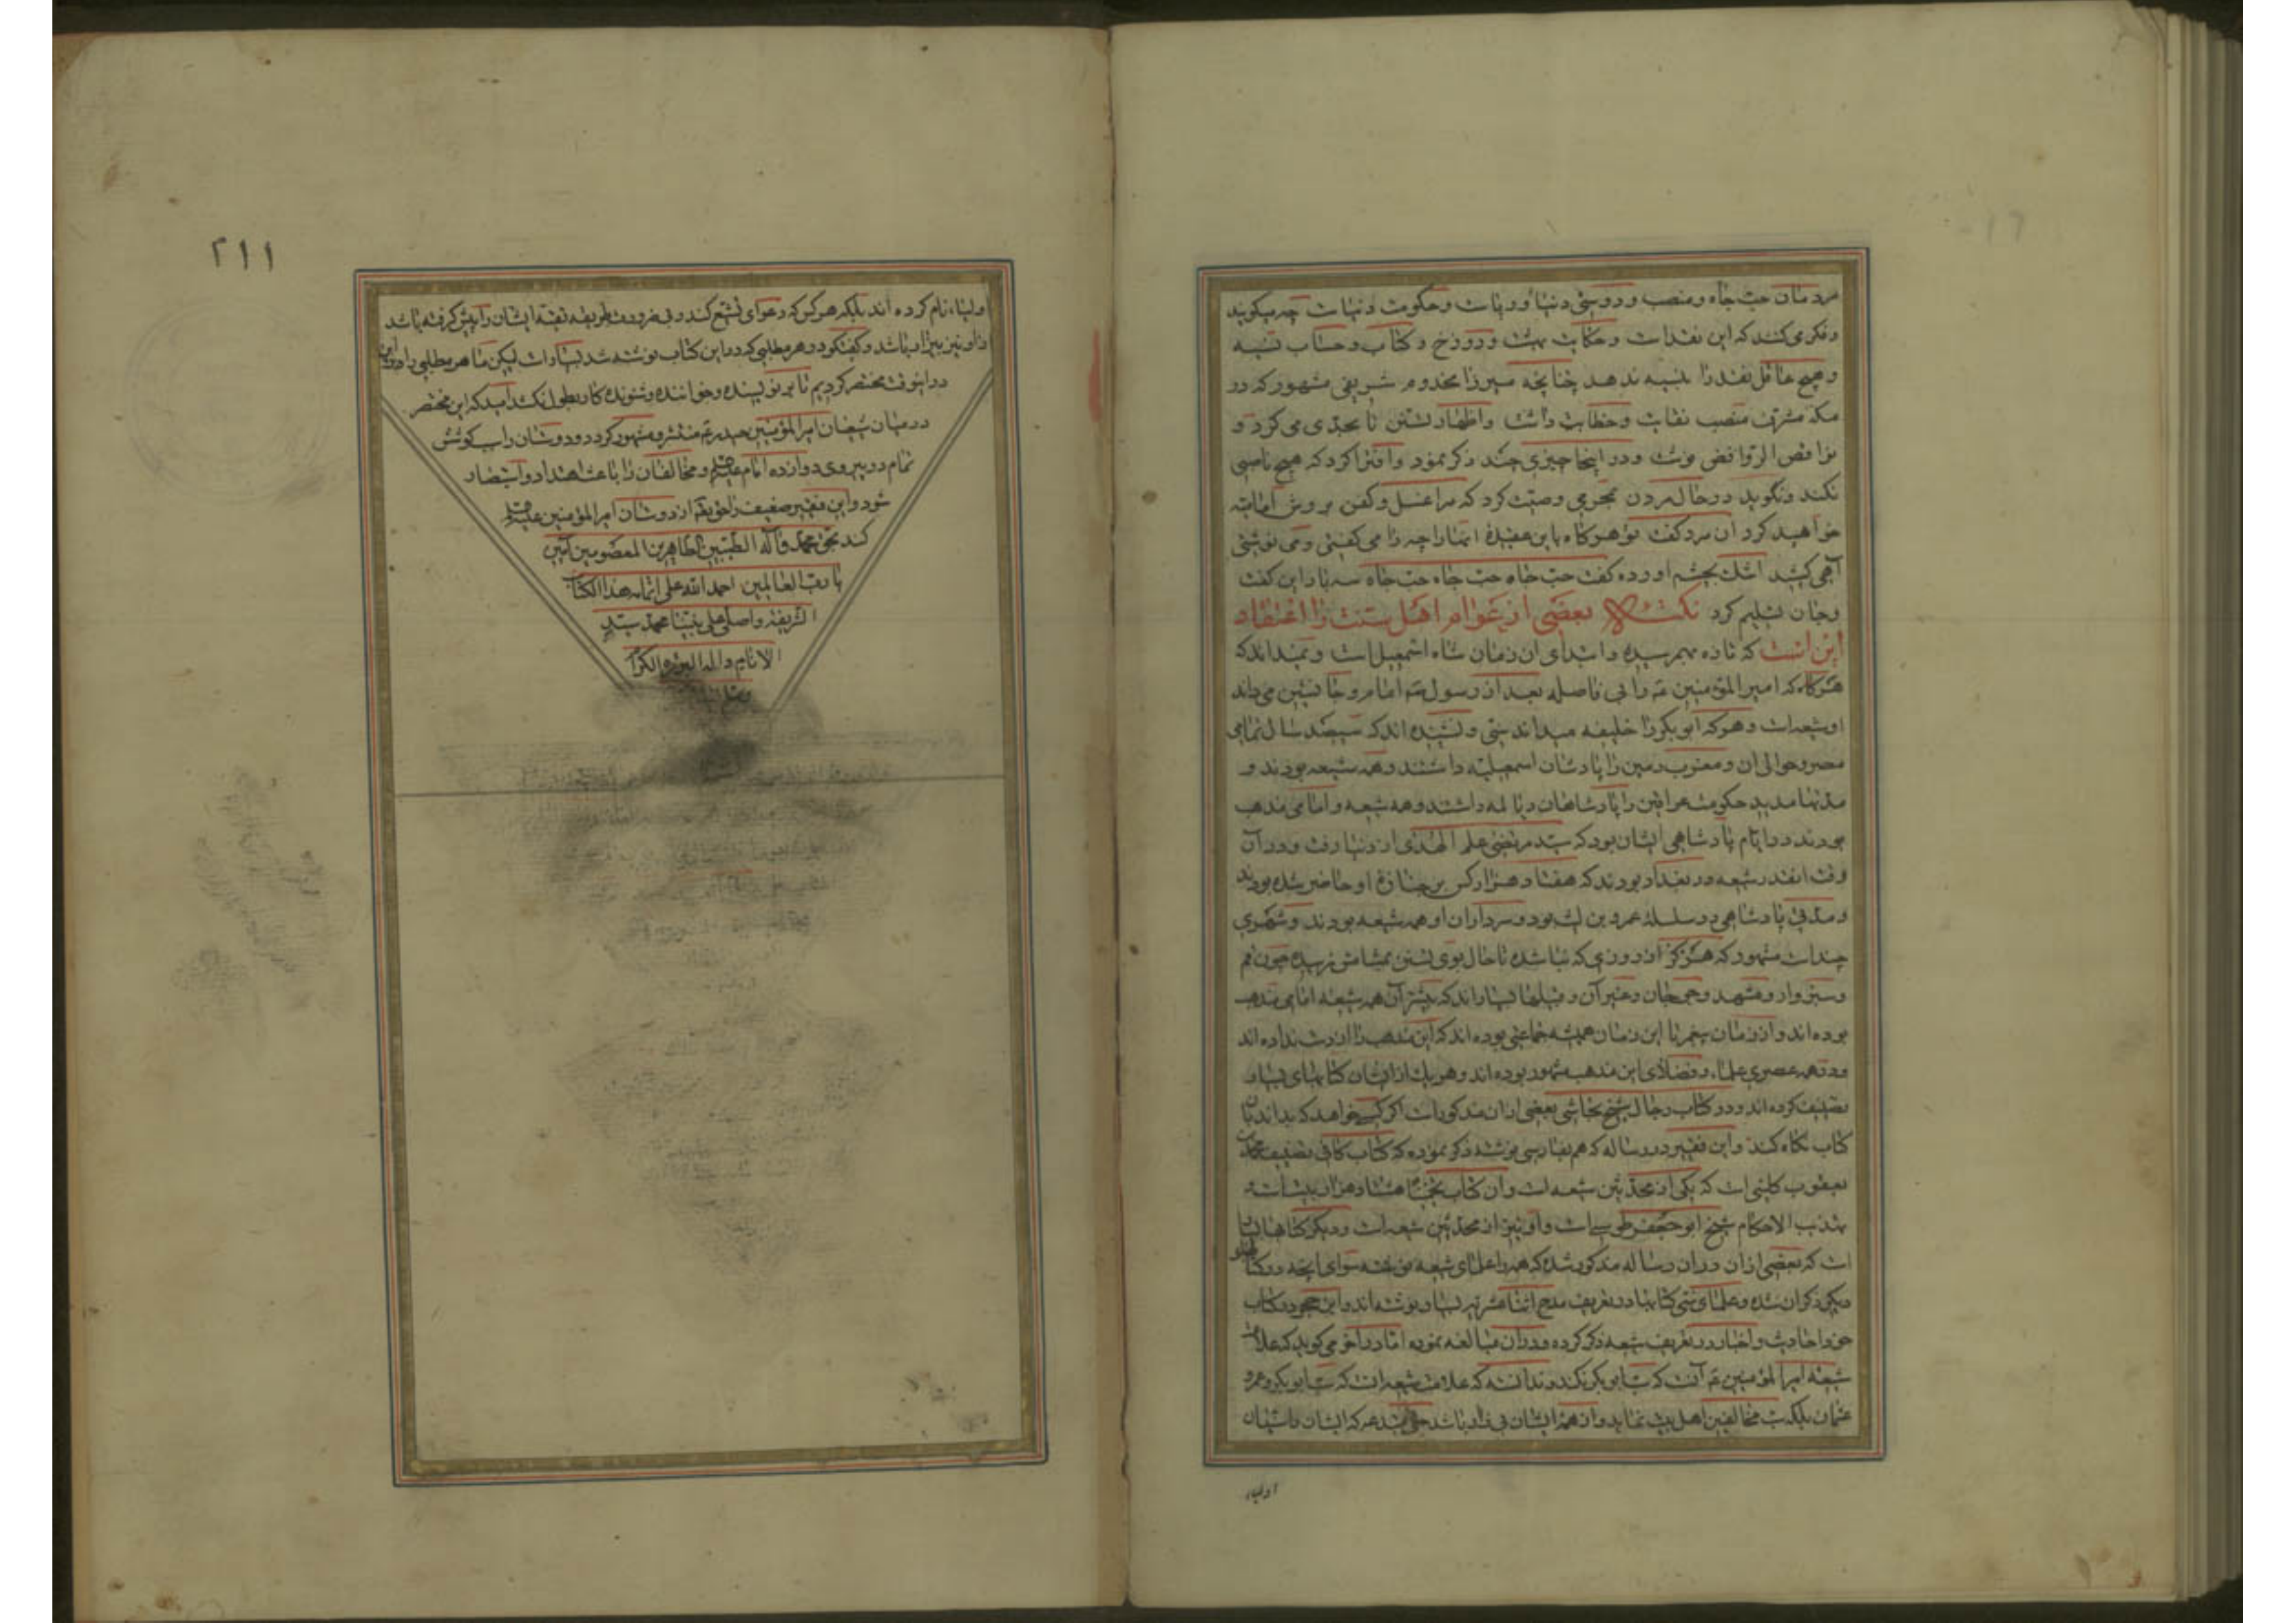 مردمان حب جاه و منصب و دوستی دنیا و ریاست و حکومت دنیاست چه میگویند
و فکر می کنند که این نقد است و حکایت بهشت و دوزخ و کتاب و حساب نسیه
و هیچ عاقل نقد را بنسیه ندهد چنانچه میرزا مخدوم شریفی مشهور که در
مکه مشرف منصب نقابت و خطابت داشت و اظهار تسنن تا بحدی می کرد و
نواقض الروافض نوشت و در اینجا چیزی چند ذکر نمود و افترا کرد که هیچ ناصبی
نکند و نگوید در حال مردن محرمی وصیت کرد که مرا غسل و کفن بروش امامیه
خواهید کرد آن مرد گفت تو هرگاه باین عقیدۀ اینها را چرا می گفتی و می نوشتی
آهی کشید اشک بچشم آورده گفت حب جاه حب جاه حب جاه سه بار این گفت
و جان تسلیم کرد نکته بعضی از عوام اهل سنت را اعتقاد
این است که تازه بهم رسیده و ابتدای آن زمان شاه اسمعیل است و نمیداند که
هرگاه که امیر المؤمنین عم را بی فاصله بعد از رسول ص امام و جانشین می داند
او شیعه است و هر که ابو بکر را خلیفه میداند سنی و نشنیده اند که سیصد سال تمامی
مصر و حوالی آن و مغرب زمین را پادشاهان اسمعیلیه داشتند و همه شیعه بودند و
مدتها مدید حکومت عراقین را پادشاهان دیالمه داشتند و همه شیعه و امامی مذهب
بودند در ایام پادشاهی ایشان بود که سید مرتضی علم الهدی از دنیا رفت و در آن
وقت انقدر شیعه در بغداد بودند که هفتاد هزار کس بر جنازۀ او حاضر شده بودند
و مدتی پادشاهی در سلسلۀ عمرو بن لیث بود و سرداران او همه شیعه بودند و شهری
چند است مشهور که هرگز از روزی که بنا شده تا حال بوی تسنن بمشامش نرسیده چون قم
و سبزوار و مشهد و غیر آن و قبیلها بسیار اند که بیشتر آن همه شیعه امامی مذهب
بوده اند و از زمان پیغمبر تا این زمان همیشه جماعتی بوده اند که این مذهب را از دست نداده اند
و در همه عصری علماء و فضلای این مذهب مشهور بوده اند و هر یک از ایشان کتابهای بسیار
تصنیف کرده اند و در کتاب رجال شیخ نجاشی بعضی از آن مذکور است اگر کسی خواهد که بداند بآن
کتاب نگاه کند و این فقیر در رساله که هم بفارسی نوشته ذکر نموده که کتاب کافی تصنیف محمد
یعقوب کلینی است که یکی از محدثین شیعه است و آن کتاب تخمینا هشتاد هزار بیت است
تهذیب الاحکام شیخ ابو جعفر طوسی است و او نیز از محدثین شیعه است و دیگر کتابها
است که بعضی از آن در آن رساله مذکور شده که همه را علمای شیعه نوشته سوای آنچه در کتاب
دیگر ذکر آن شده و علمای سنی کتابها در تعریف مدح اثنا عشریه بسیار نوشته اند و ابن حجر در کتاب
خود احادیث و اخبار در تعریف شیعه ذکر کرده و در آن مبالغه نموده اما در آخر می گوید که علامت
شیعه امیر المؤمنین عم آنست که سب ابو بکر نکند و ندانسته که علامت شیعه آنست که سب ابو بکر و عمر و
عثمان بلکه سب مخالفین اهل بیت نماید و از همه ایشان بیزار باشد هر که ایشان را شیعیان
اولیاء
۲۱۱
اولیاء نام کرده اند بلکه هر کس که دعوای تشیع کند و بی ضرورت طریقه تقیه ایشان را پیش گرفته باشد
از او نیز بیزار باشد و گفتگو در هر مطلبی که در این کتاب نوشته شد بسیار است لیکن ما هر مطلبی را
در اینوقت مختصر کردیم تا بر نویسنده و خواننده و شنونده کار بطول نکشد امید که این مختصر
در میان شیعیان امیر المؤمنین حیدر عم منتشر و مشهور گردد و دوستان را سب کوشش
تمام در پیروی دوازده امام علیهم و مخالفان را باعث اهتدا و استبصار
شود و این فقیر ضعیف را حق تعه از دوستان امیر المؤمنین علیه
کند بحق محمد و آله الطیبین الطاهرین المعصومین آمین
یا رب العالمین احمد الله علی اتمام هذا الکتاب
الشریف و اصلی علی نبینا محمد سید
الانام و اله البررة الکرام